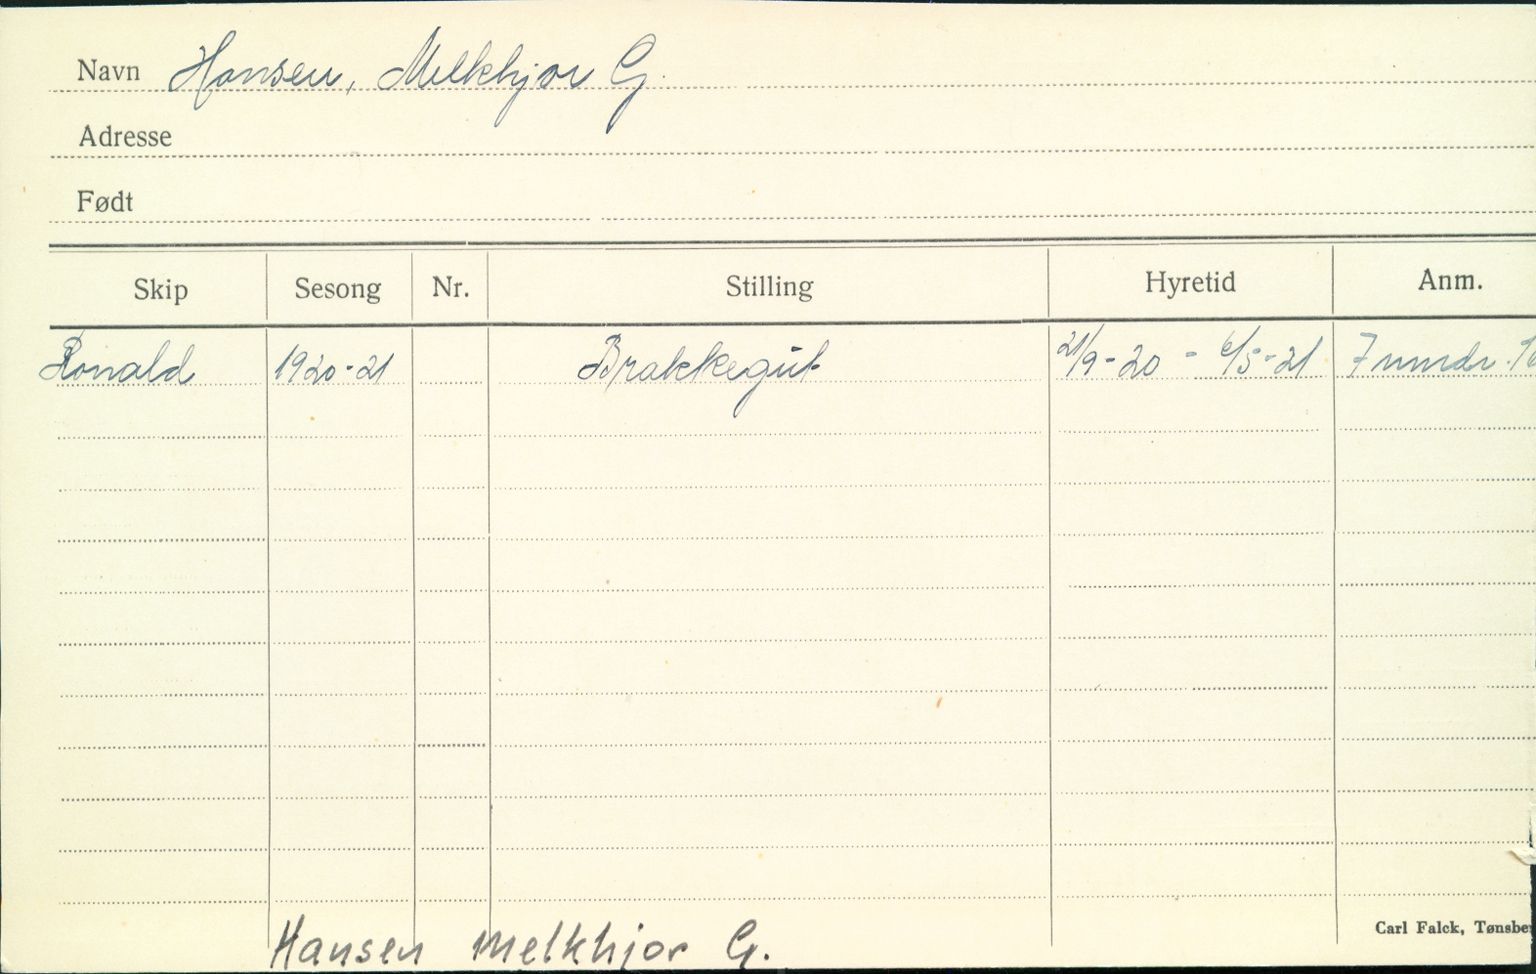 Navn Hansen, Melkhjor G.
Adresse
Født
Skip Sesong Nr. Stilling Hyretid Anm.
Ronald 1920-21 Brakkegut 21/9-20 - 6/5-21 7 mndr.
Hansen Melkhjor G.
Carl Falck, Tønsbe